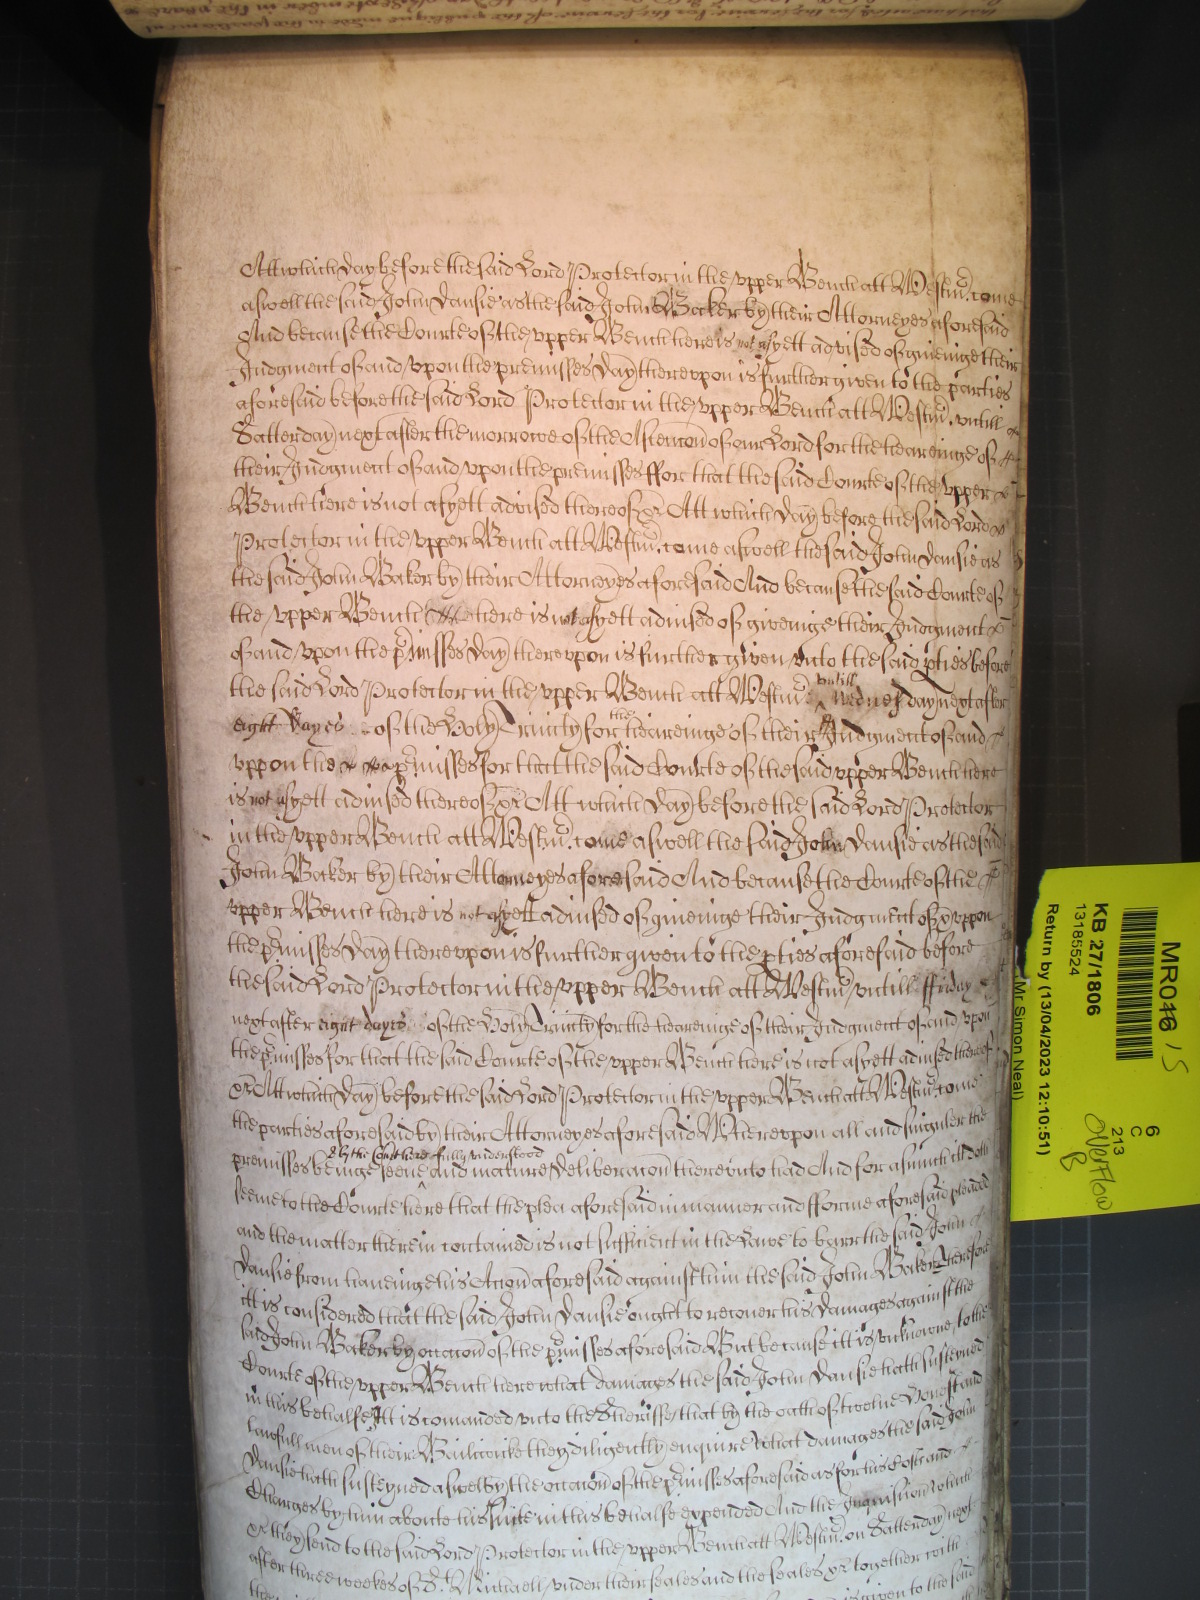 Att which day before the said Lord Protector in the upper Bench att Westm̃. come
aswell the said John Dansie as the said John Baker by their Attorneyes aforesaid
And because the Courte of the upper Bench here is not as yett advised of giveinge their
Judgment of and upon the premisses day thereupon is further given to the parties
aforesaid before the said Lord Protector in the upper Bench att Westm̃. untill
Satterday next after the morrowe of the Ascencon of our Lord for the heareinge of
their Judgment of and upon the premisses ffor that the said Courte of the upper
Bench here is not as yett advised thereof &c Att which day before the said Lord
Protector in the upper Bench att Westm̃. come aswell the said John Dansie as
the said John Baker by their Attorneyes aforesaid And because the said Courte of
the upper Bench here is not as yett advised of giveinge their Judgment
of and upon the p̃misses day thereupon is further given unto the said pties before
the said Lord Protector in the upper Bench att Westm̃. untill Wednesday next after
eight dayes of the Holy Trinity for the heareinge of their Judgment of and
uppon the p̃misses for that the said Courte of the said upper Bench here
is not as yett advised thereof &c Att which day before the said Lord Protector
in the upper Bench att Westm̃. come aswell the said John Dansie as the said
John Baker by their Attorneyes aforesaid And because the Courte of the
upper Bench here is not as yett advised of giveinge their Judgment of & uppon
the p̃misses day thereupon is further given to the pties aforesaid before
the said Lord Protector in the upper Bench att Westm̃. untill ffriday
next after eight dayes of the Holy Trinity for the heareinge of their Judgment of and upon
the p̃misses for that the said Courte of the upper Bench here is not as yett advised thereof
&c Att which day before the said Lord Protector in the upper Bench att Westm̃. come
the parties aforesaid by their Attorneyes aforesaid Whereupon all and singuler the
premisses beinge seene & by the Court here fully understood and mature deliberacon thereunto had And for asmuch itt doth
seeme to the Courte here that the plea aforesaid in manner and fforme aforesaid pleaded
and the matter therein contained is not sufficient in the Lawe to barr the said John
Dansie from haveinge his Accon aforesaid against him the said John Baker Therefore
itt is considered that the said John Dansie ought to recover his damages against the
said John Baker by occacon of the p̃misses aforesaid But because itt is unknowne to the
Courte of the upper Bench here what damages the said John Dansie hath susteyned
in this behalfe Itt is comanded unto the Sheriffe that by the oath of twelve Honest and
lawfull men of their Bailiwicke they diligently enquire what damages the said John
Dansie hath susteyned aswell by the occacon of the p̃misses aforesaid as for his Costs and
Charges by him aboute his suite in this behalfe expended And the Inquisicion which
&c they send to the said Lord Protector in the upper Bench att Westm̃. on Satterday next
after three weekes of St. Michaell under their seales and the seales &c together with
is given to the said
MR046
KB 27/1806
13185524
Return by (13/04/2023 12:10:51)
Mr Simon Neal)
6
C
213
Overflow
B